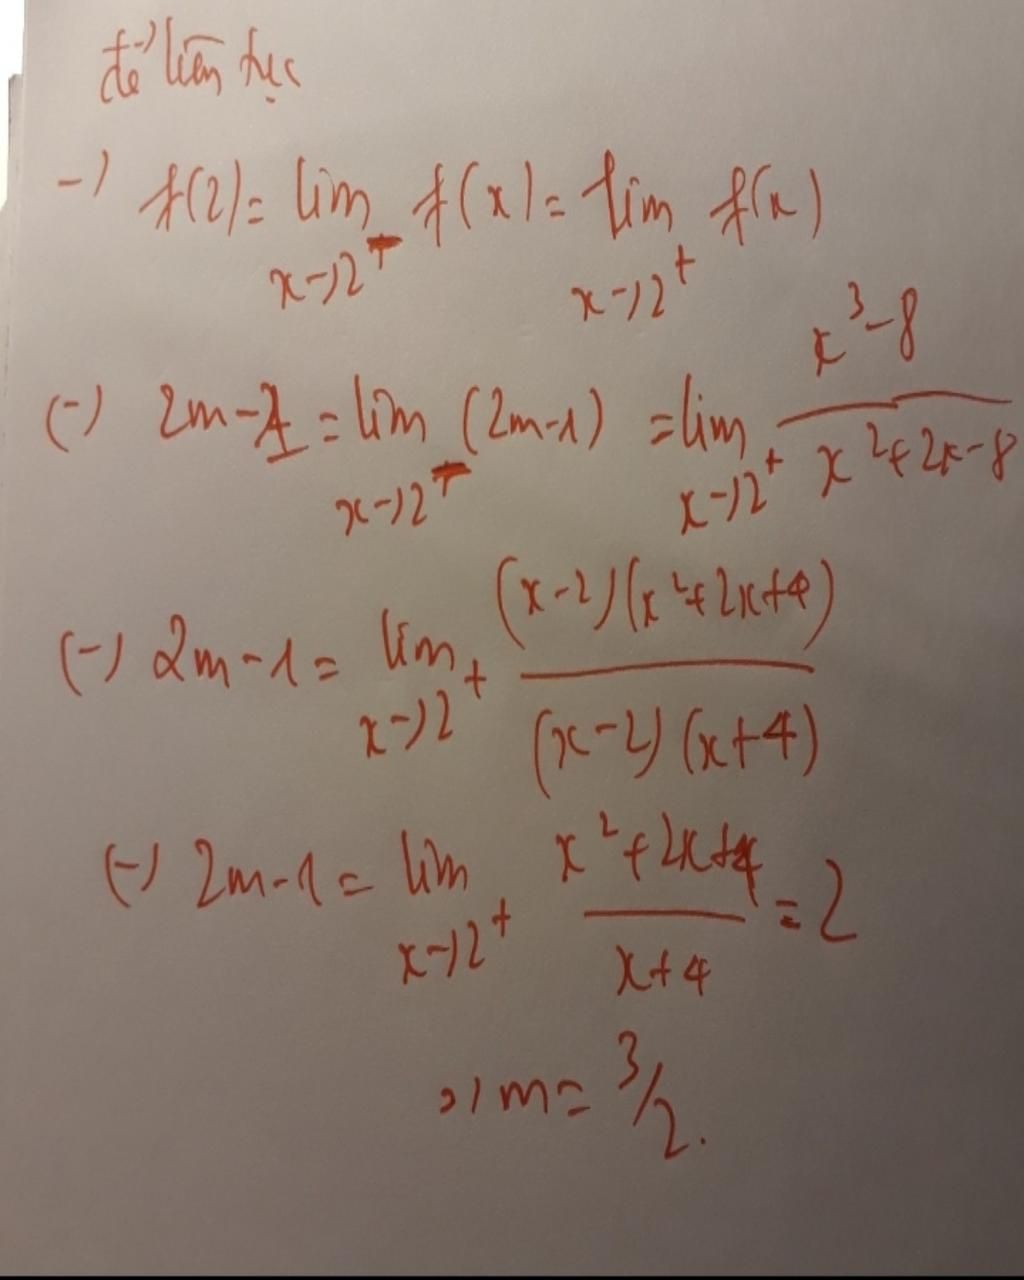 để liên tục
-) f(2) = lim x->2⁻ f(x) = lim x->2⁺ f(x)
(-) 2m-1 = lim x->2⁻ (2m-1) = lim x->2⁺ (x³-8)/(x²+2x-8)
(-) 2m-1 = lim x->2⁺ ((x-2)(x²+2x+4))/((x-2)(x+4))
(-) 2m-1 = lim x->2⁺ (x²+2x+4)/(x+4) = 2
=) m = 3/2.